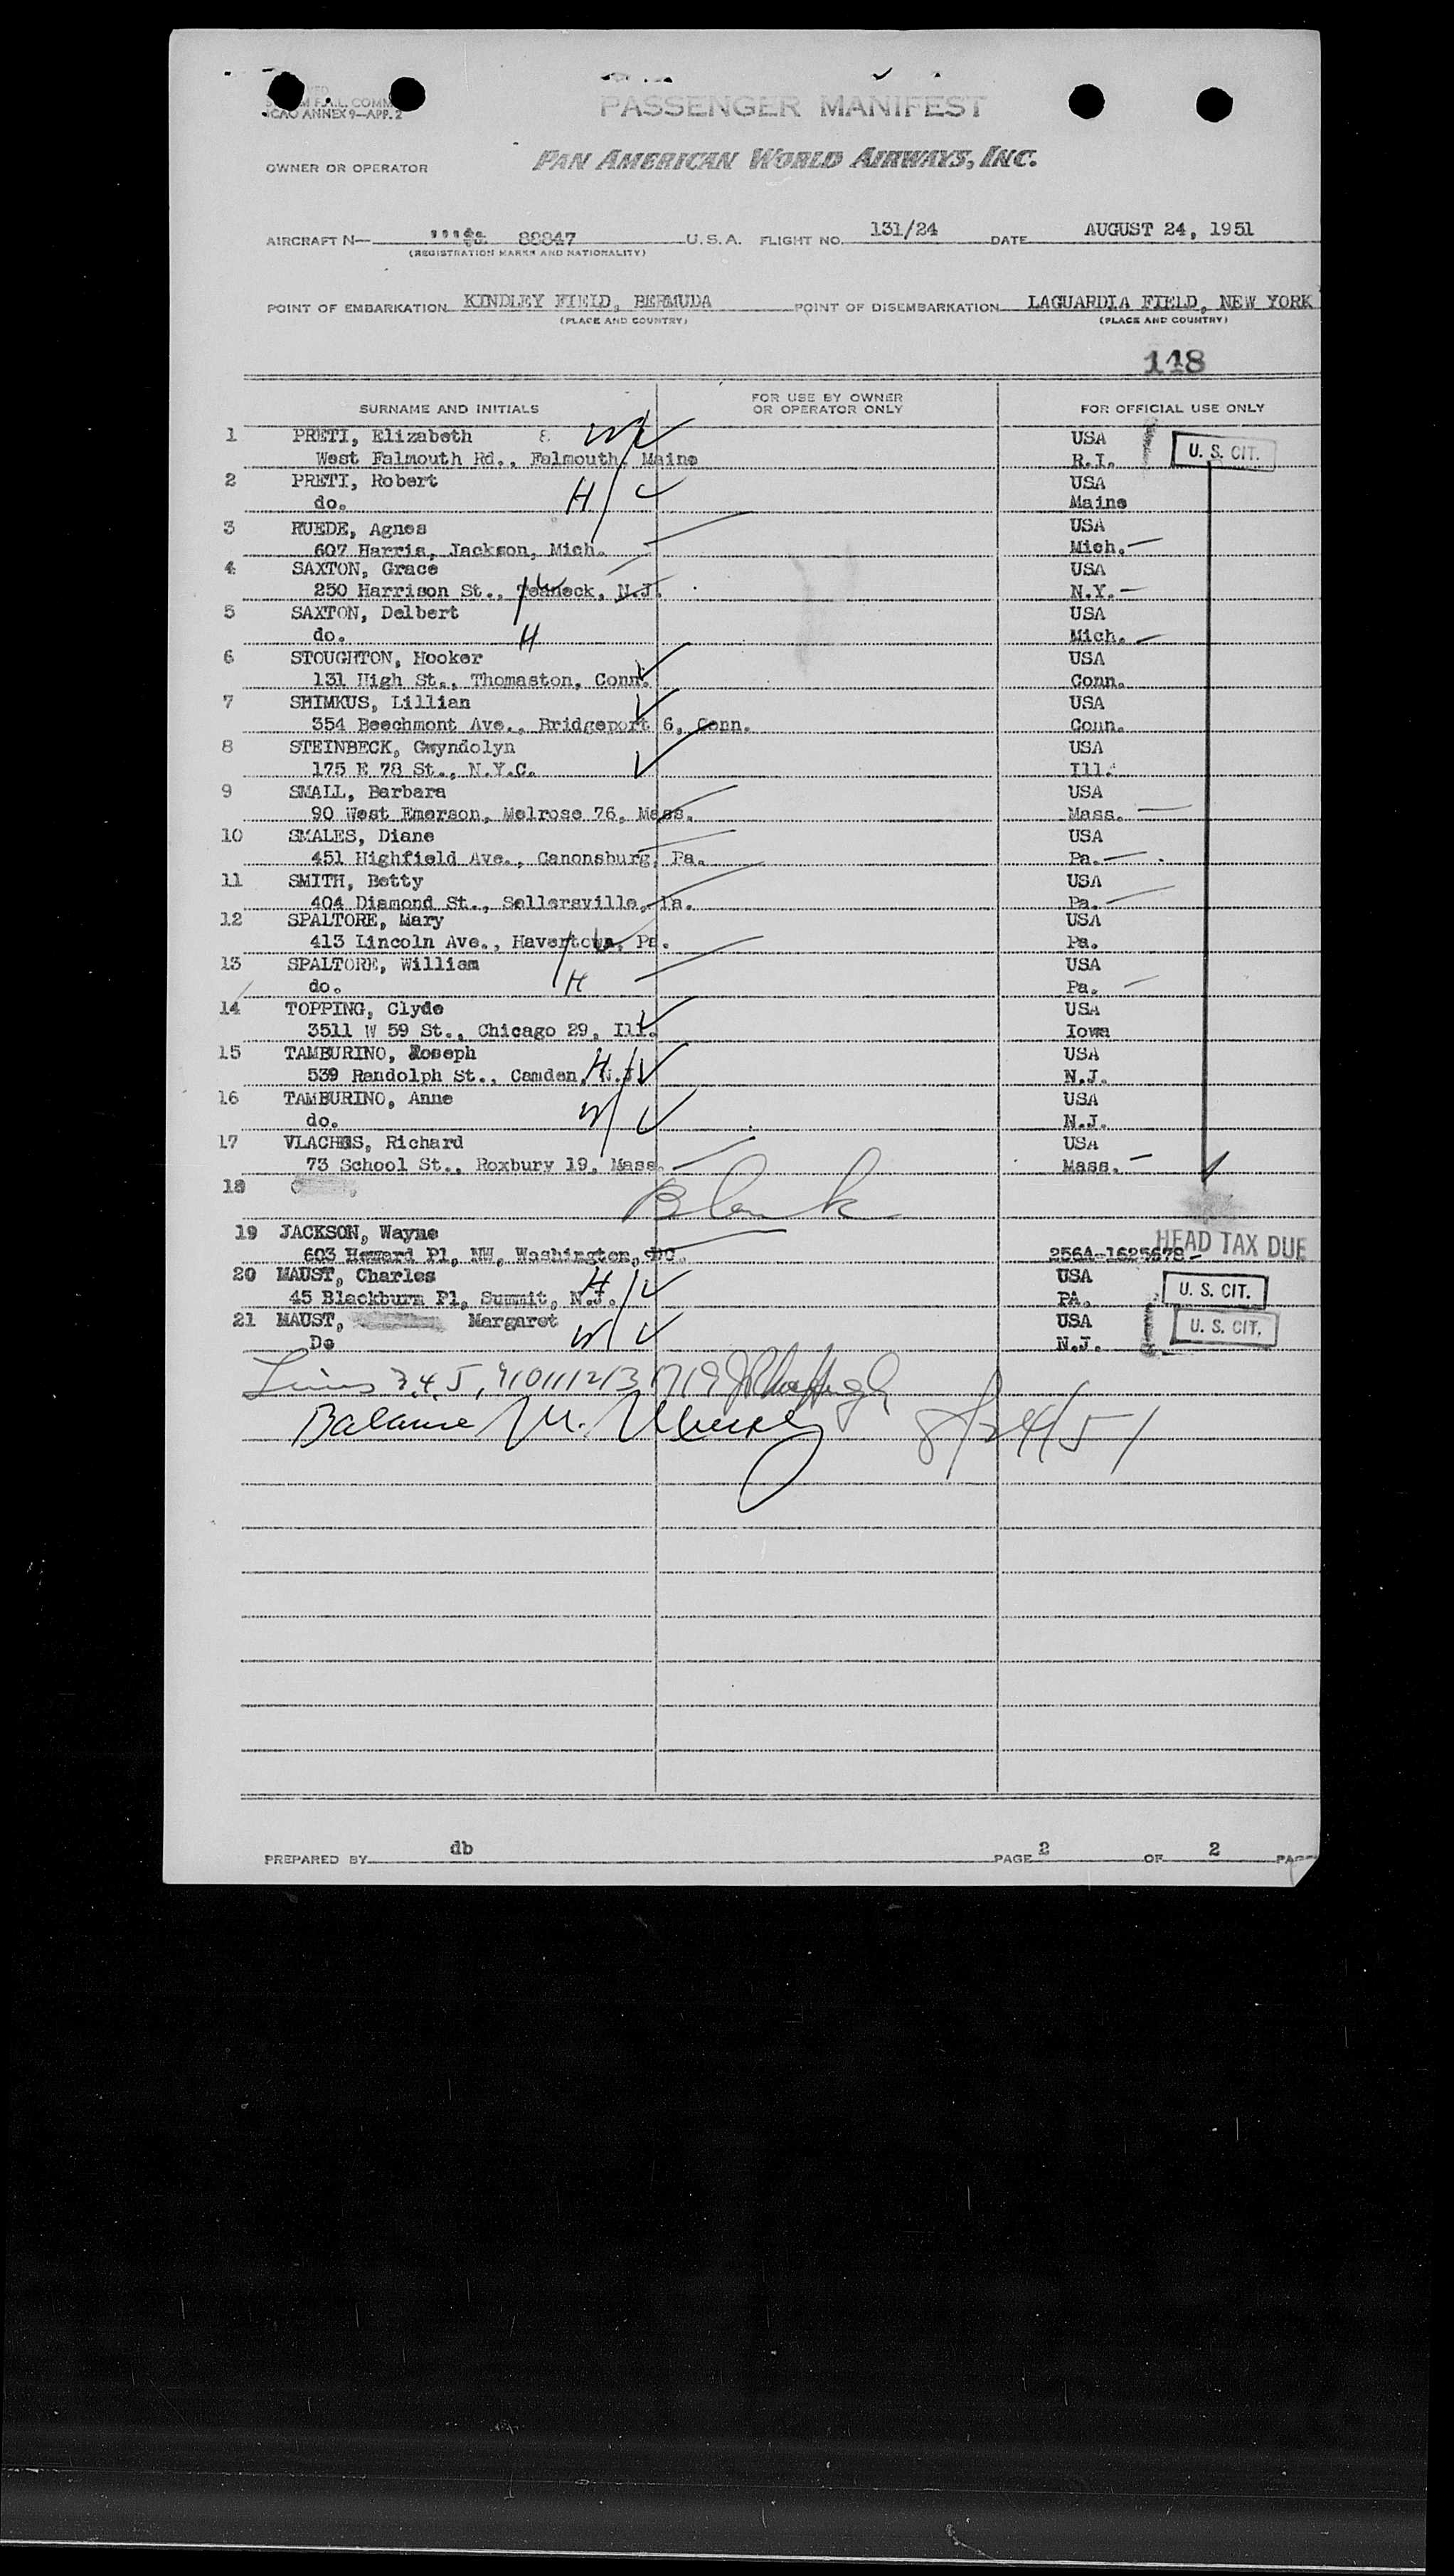 ICAO ANNEX 9—APP. 2
PASSENGER MANIFEST
OWNER OR OPERATOR PAN AMERICAN WORLD AIRWAYS, INC.
AIRCRAFT N— 88847 U. S. A. FLIGHT NO. 131/24 DATE AUGUST 24, 1951
(REGISTRATION MARKS AND NATIONALITY)
POINT OF EMBARKATION KINDLEY FIELD, BERMUDA POINT OF DISEMBARKATION LAGUARDIA FIELD, NEW YORK
(PLACE AND COUNTRY) (PLACE AND COUNTRY)
148
SURNAME AND INITIALS FOR USE BY OWNER OR OPERATOR ONLY FOR OFFICIAL USE ONLY
1 PRETI, Elizabeth W USA
West Falmouth Rd., Falmouth, Maine R.I. U. S. CIT.
2 PRETI, Robert USA
do. H Maine
3 RUEDE, Agnes USA
607 Harris, Jackson, Mich. Mich.
4 SAXTON, Grace USA
250 Harrison St., Teaneck, N.J. N.Y.
5 SAXTON, Delbert USA
do. H Mich.
6 STOUGHTON, Hooker USA
131 High St., Thomaston, Conn. Conn.
7 SHIMKUS, Lillian USA
354 Beechmont Ave., Bridgeport 6, Conn. Conn.
8 STEINBECK, Gwyndolyn USA
175 E 78 St., N.Y.C. Ill.
9 SMALL, Barbara USA
90 West Emerson, Melrose 76, Mass. Mass.
10 SMALES, Diane USA
451 Highfield Ave., Canonsburg, Pa. Pa.
11 SMITH, Betty USA
404 Diamond St., Sellersville, Pa. Pa.
12 SPALTORE, Mary USA
413 Lincoln Ave., Havertown, Pa. Pa.
13 SPALTORE, William USA
do. H Pa.
14 TOPPING, Clyde USA
3511 W 59 St., Chicago 29, Ill. Iowa
15 TAMBURINO, Joseph USA
539 Randolph St., Camden, N.J. H N.J.
16 TAMBURINO, Anne W USA
do. N.J.
17 VLACHOS, Richard USA
73 School St., Roxbury 19, Mass. Mass.
18 Blank
19 JACKSON, Wayne HEAD TAX DUE
603 Howard Pl, NW, Washington, DC. 2564-1625678
20 MAUST, Charles H USA
45 Blackburn Pl, Summit, N.J. PA. U. S. CIT.
21 MAUST, Margaret W USA
Do N.J. U. S. CIT.
Lines 3, 4, 5, 9 10 11 12 13 17 19
Balance M. 8/24/51
PREPARED BY db PAGE 2 OF 2